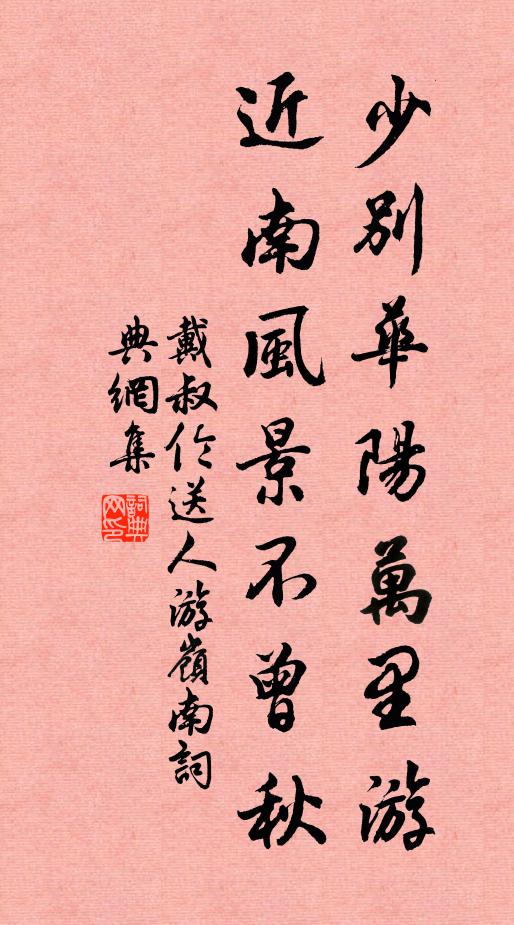 少別華陽萬里游
近南風景不曾秋
戴叔伦送人游嶺南詞
典網集
詞典網印